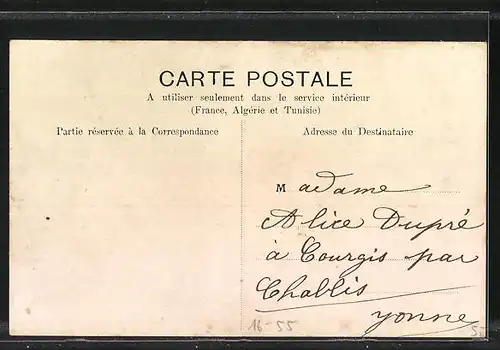 CARTE POSTALE
A utiliser seulement dans le service intérieur
(France, Algérie et Tunisie)
Partie réservée à la Correspondance
Adresse du Destinataire
Madame
Alice Dupré
à Courgis par
Chablis
Yonne
16-55